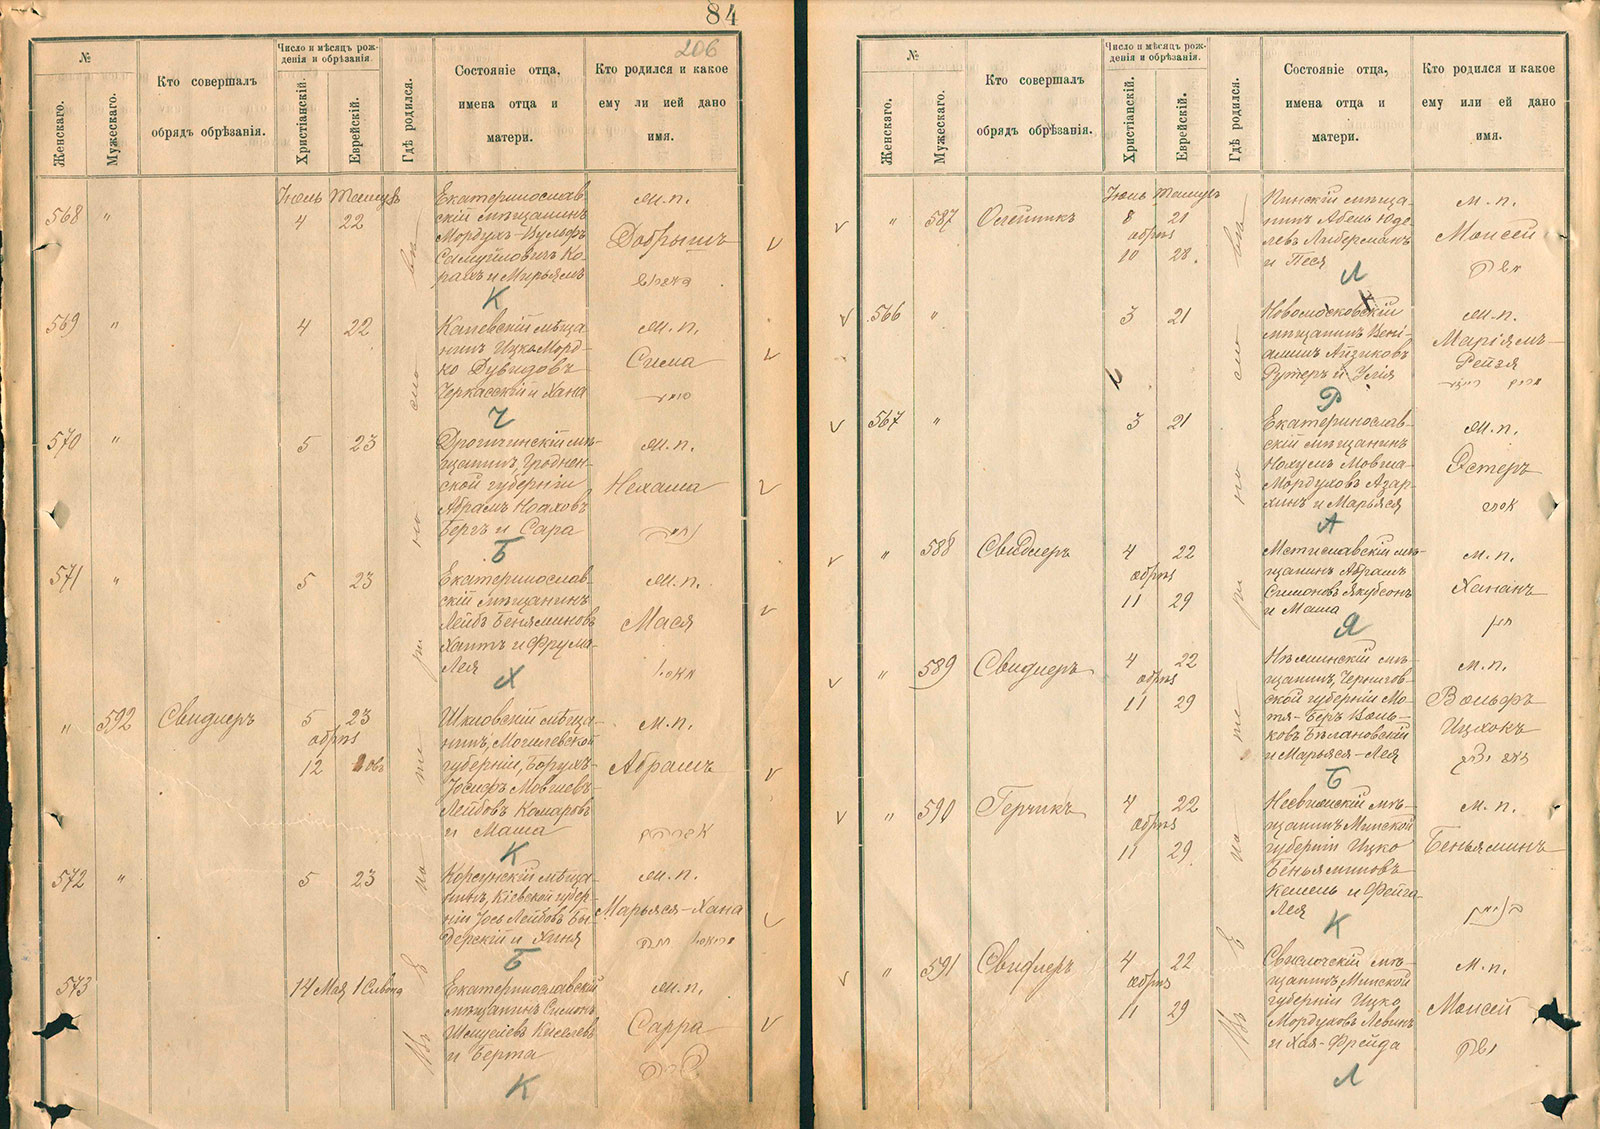 84
206
№
Женскаго.
Мужескаго.
Кто совершалъ
обрядъ обрѣзанія.
Число и мѣсяцъ рож-
денія и обрѣзанія.
Христіанскій.
Еврейскій.
Гдѣ родился.
Состояніе отца,
имена отца и
матери.
Кто родился и какое
ему ли ией дано
имя.
Іюль Тамузъ
568 " 4 22
Екатеринослав
скій мѣщанинъ
Мордухъ-Вульфъ
Самуйловичъ Ко-
рахъ и Мирьямъ
К
м.п.
Добрышъ
569 " 4 22
Каневскій мѣща
нинъ Ицко Морд-
ко Дувидовъ
Черкасскій и Хана
Ч
м.п.
Сима
570 " 5 23
Дрогичинскій мѣ-
щанинъ, Гроднен-
ской губерніи
Абрамъ Ноаховъ
Бергъ и Сара
Б
м.п.
Нехама
571 " 5 23
Екатеринослав-
скій мѣщанинъ
Лейбъ Беняминовъ
Хаитъ и Фрума-
Лея
Х
м.п.
Мася
" 592 Свидлеръ 5 23
обрѣз
12
Шкловскій мѣща-
нинъ, Могилевской
губерніи, Борухъ-
Іосифъ Мовшевъ-
Лейбовъ Комаровъ
и Маша
К
м.п.
Абрамъ
572 " 5 23
Корсунскій мѣща-
нинъ, Кіевской губер-
ніи Іось Лейбовъ Бы-
дерскій и Хиня
Б
м.п.
Марьяся-Хана
573 14 Мая 1 Сивона
Екатеринославскій
мѣщанинъ Симонъ
Шмуелевъ Киселевъ
и Берта
К
м.п.
Сарра
№
Женскаго.
Мужескаго.
Кто совершалъ
обрядъ обрѣзанія.
Число и мѣсяцъ рож-
денія и обрѣзанія.
Христіанскій.
Еврейскій.
Гдѣ родился.
Состояніе отца,
имена отца и
матери.
Кто родился и какое
ему или ей дано
имя.
Іюль Тамузъ
" 587 Олейникъ 8 21
обрѣз
10 28
Пинскій мѣща-
нинъ Абель Юде-
левъ Либерманъ
и Песя
Л
м.п.
Моисей
משה
566 " 3 21
Новомосковскій
мѣщанинъ Вені-
аминъ Айзиковъ
Рутеръ и
Р
м.п.
Маріямъ-
Рейзя
567 " 3 21
Екатеринослав-
скій мѣщанинъ
Нахумъ Мовша-
Мордуховъ Азар-
хинъ и Марьяся
А
м.п.
Эстеръ
אסתר
" 588 Свидлеръ 4 22
обрѣз
11 29
Мстиславскій мѣ-
щанинъ Абрамъ
Симоновъ Якубсонъ
и Маша
Я
м.п.
Хананъ
חנן
" 589 Свидлеръ 4 22
обрѣз
11 29
мѣ-
щанинъ, Чернигов-
ской губерніи Мо-
тя-Беръ Воль-
ковъ Бѣлановскій
и Марьяся-Лея
Б
м.п.
Вольфъ
Ицхокъ
" 590 Герчикъ 4 22
обрѣз
11 29
Несвижскій мѣ-
щанинъ Минской
губерніи Ицко
Беньяминовъ
Кемель и Фейга-
Лея
К
м.п.
Беньяминъ
בנימין
" 591 Свидлеръ 4 22
обрѣз
11 29
Свислочскій мѣ-
щанинъ, Минской
губерніи Ицко
Мордуховъ Левинъ
и Хая-Фрейда
Л
м.п.
Моисей
משה